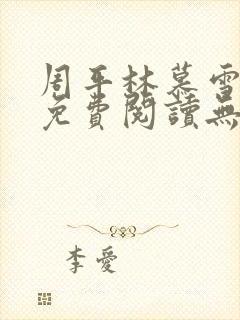 周平林慕雪
免費閱讀無
李愛